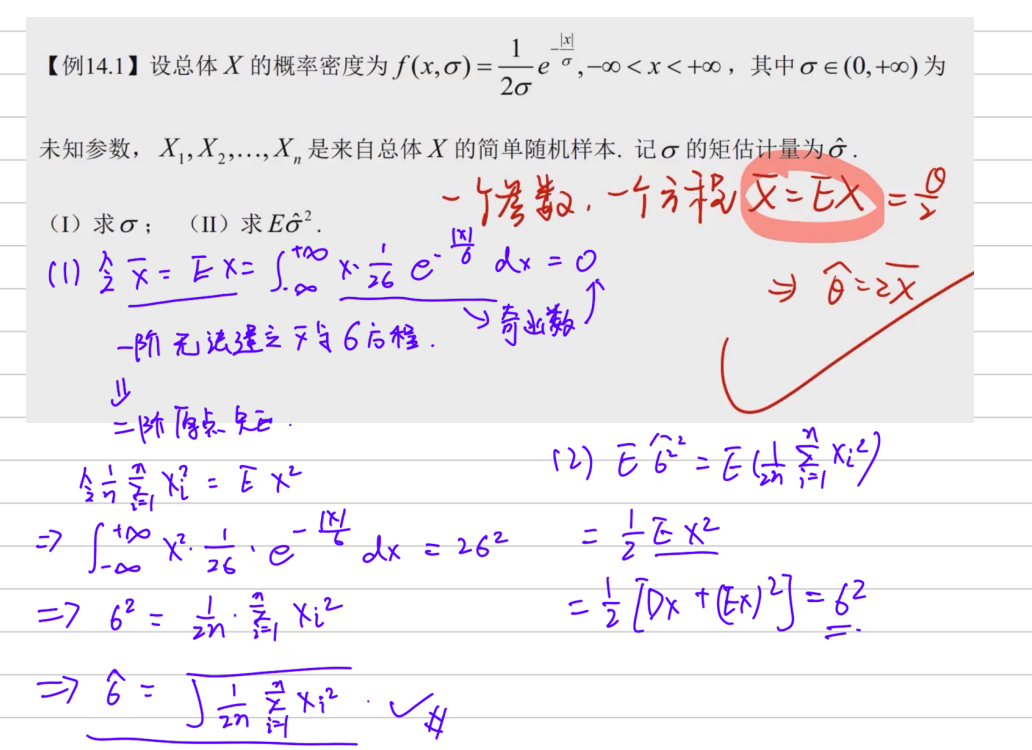 【例14.1】设总体 X 的概率密度为 f(x,σ) = 1/(2σ) e^(-|x|/σ), -∞ < x < +∞，其中 σ∈(0,+∞) 为
未知参数， X₁, X₂, …, Xₙ 是来自总体 X 的简单随机样本. 记 σ 的矩估计量为 σ̂ .
一个参数. 一个方程 X̄ = EX = θ/2
(I) 求 σ； (II) 求 Eσ̂².
⇒ θ̂ = 2X̄
(1) 令 X̄ = EX = ∫_{-∞}^{+∞} x · 1/(2σ) e^(-|x|/σ) dx = 0
→ 奇函数
一阶无法建立 X̄ 与 σ 方程.
⇓
二阶原点矩.
令 1/n Σ_{i=1}^{n} Xᵢ² = EX²
⇒ ∫_{-∞}^{+∞} x² · 1/(2σ) · e^(-|x|/σ) dx = 2σ²
⇒ σ² = 1/(2n) · Σ_{i=1}^{n} Xᵢ²
⇒ σ̂ = √(1/(2n) Σ_{i=1}^{n} Xᵢ²) . ✓ #
(2) Eσ̂² = E(1/(2n) Σ_{i=1}^{n} Xᵢ²)
= 1/2 EX²
= 1/2 [DX + (EX)²] = σ²